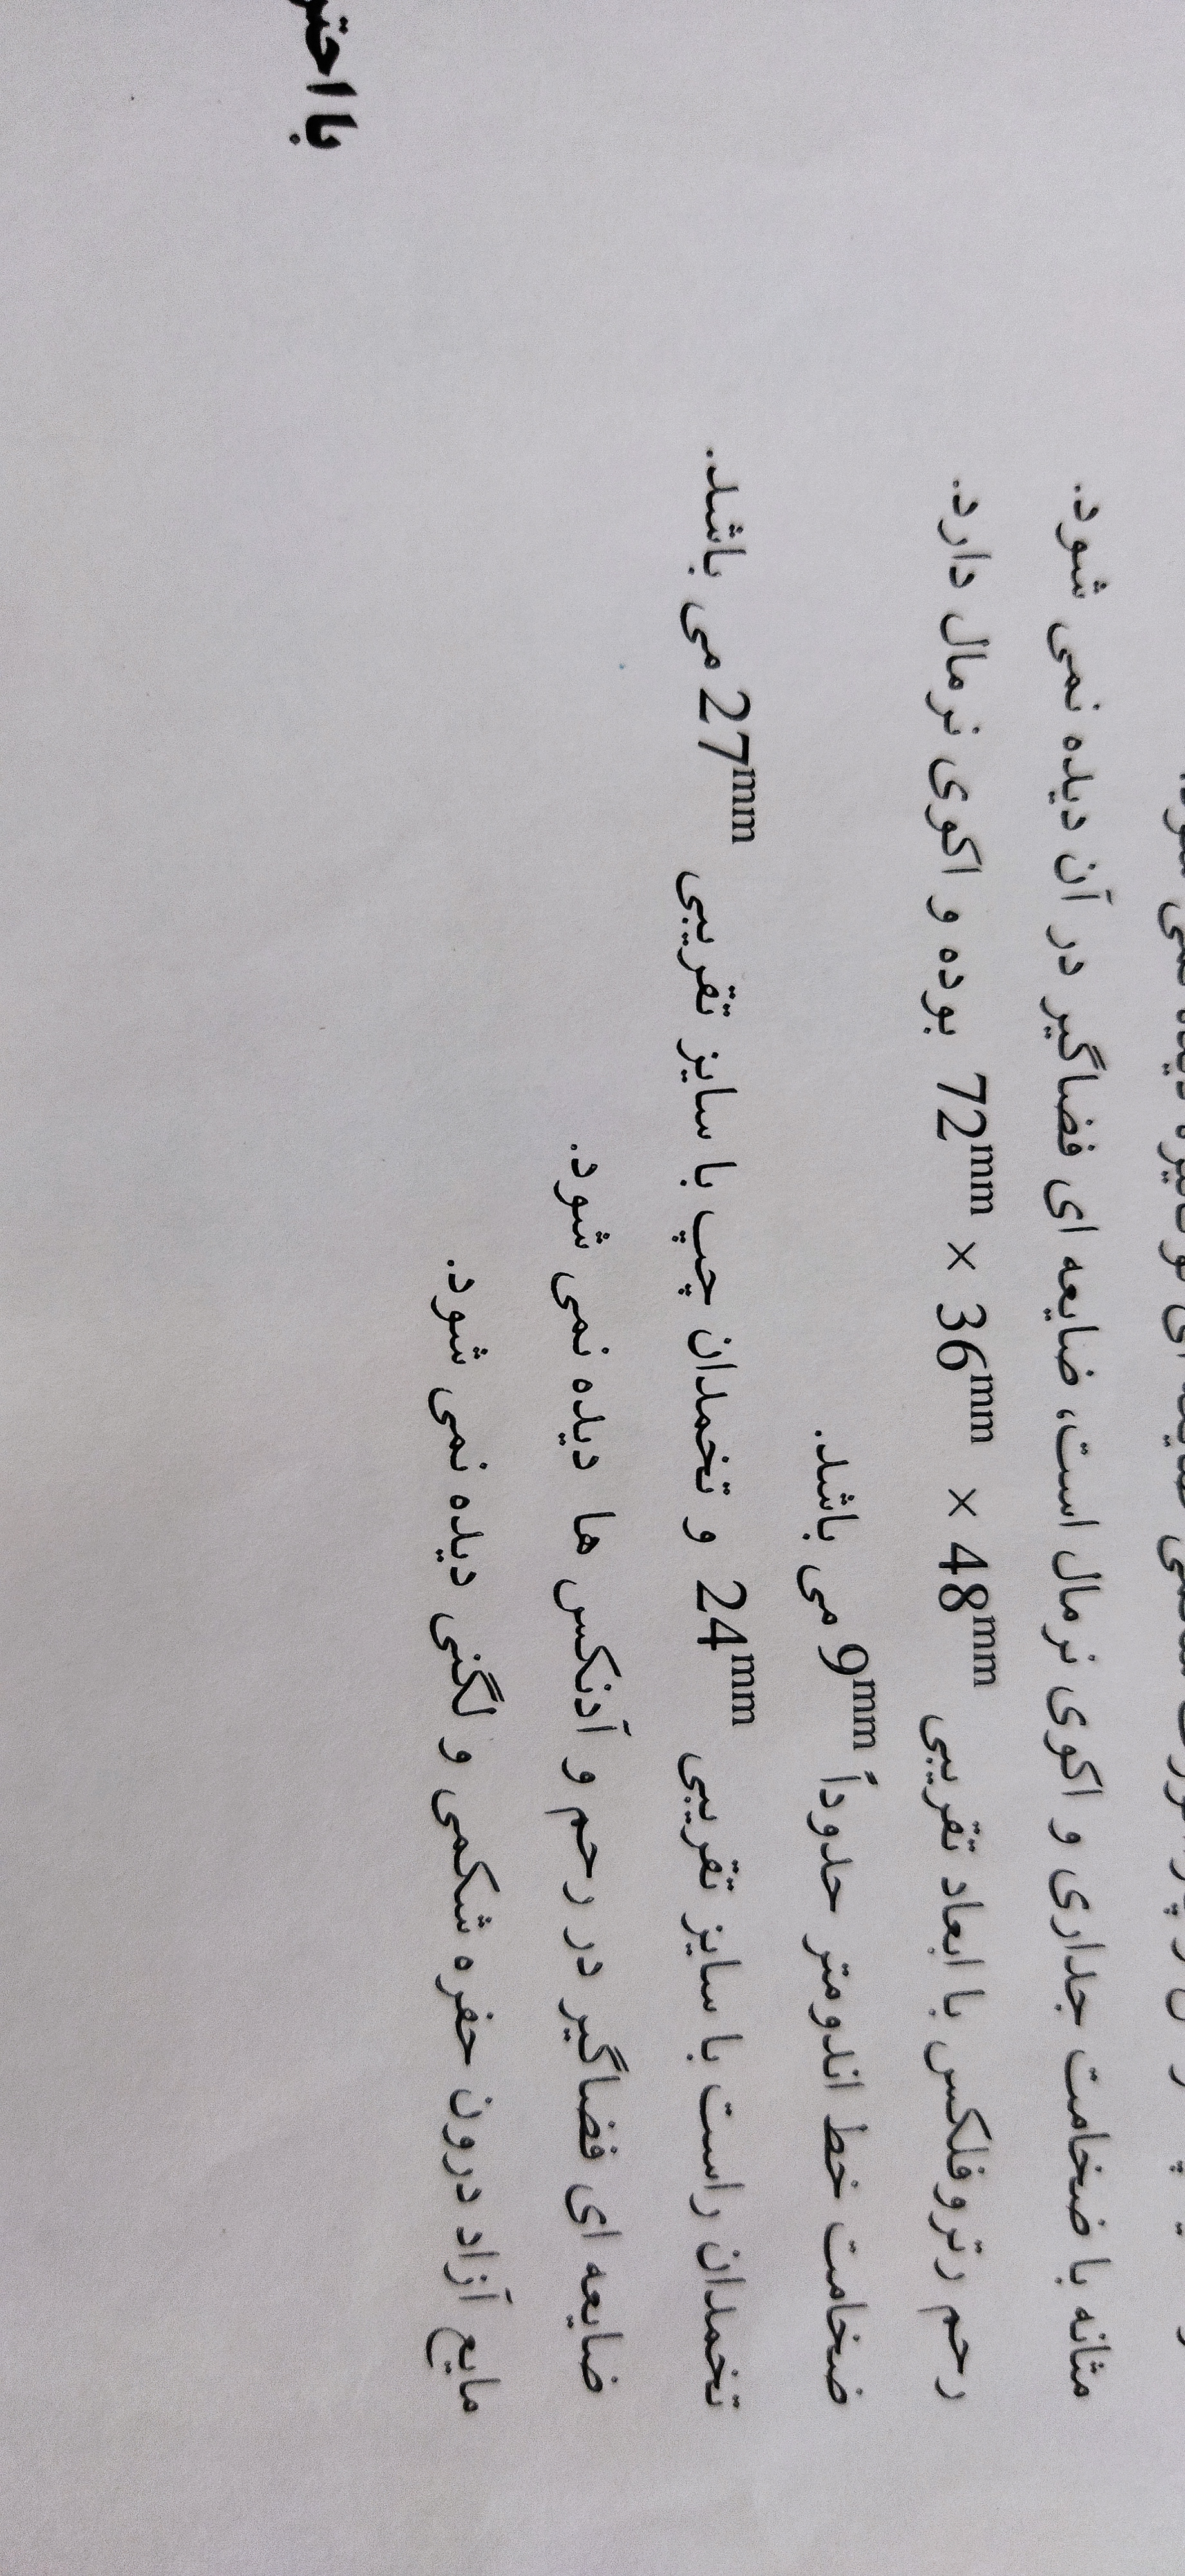 مثانه با ضخامت جداری و اکوی نرمال است، ضایعه ای فضاگیر در آن دیده نمی شود.
رحم رتروفلکس با ابعاد تقریبی 48mm × 36mm × 72mm بوده و اکوی نرمال دارد.
ضخامت خط اندومتر حدوداً 9mm می باشد.
تخمدان راست با سایز تقریبی 24mm و تخمدان چپ با سایز تقریبی 27mm می باشد.
ضایعه ای فضاگیر در رحم و آدنکس ها دیده نمی شود.
مایع آزاد درون حفره شکمی و لگنی دیده نمی شود.
با